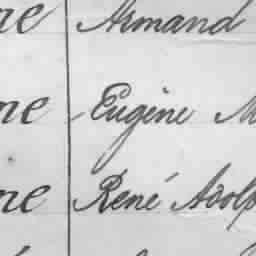 ne Armand
ne Eugène M
ne René Adolp